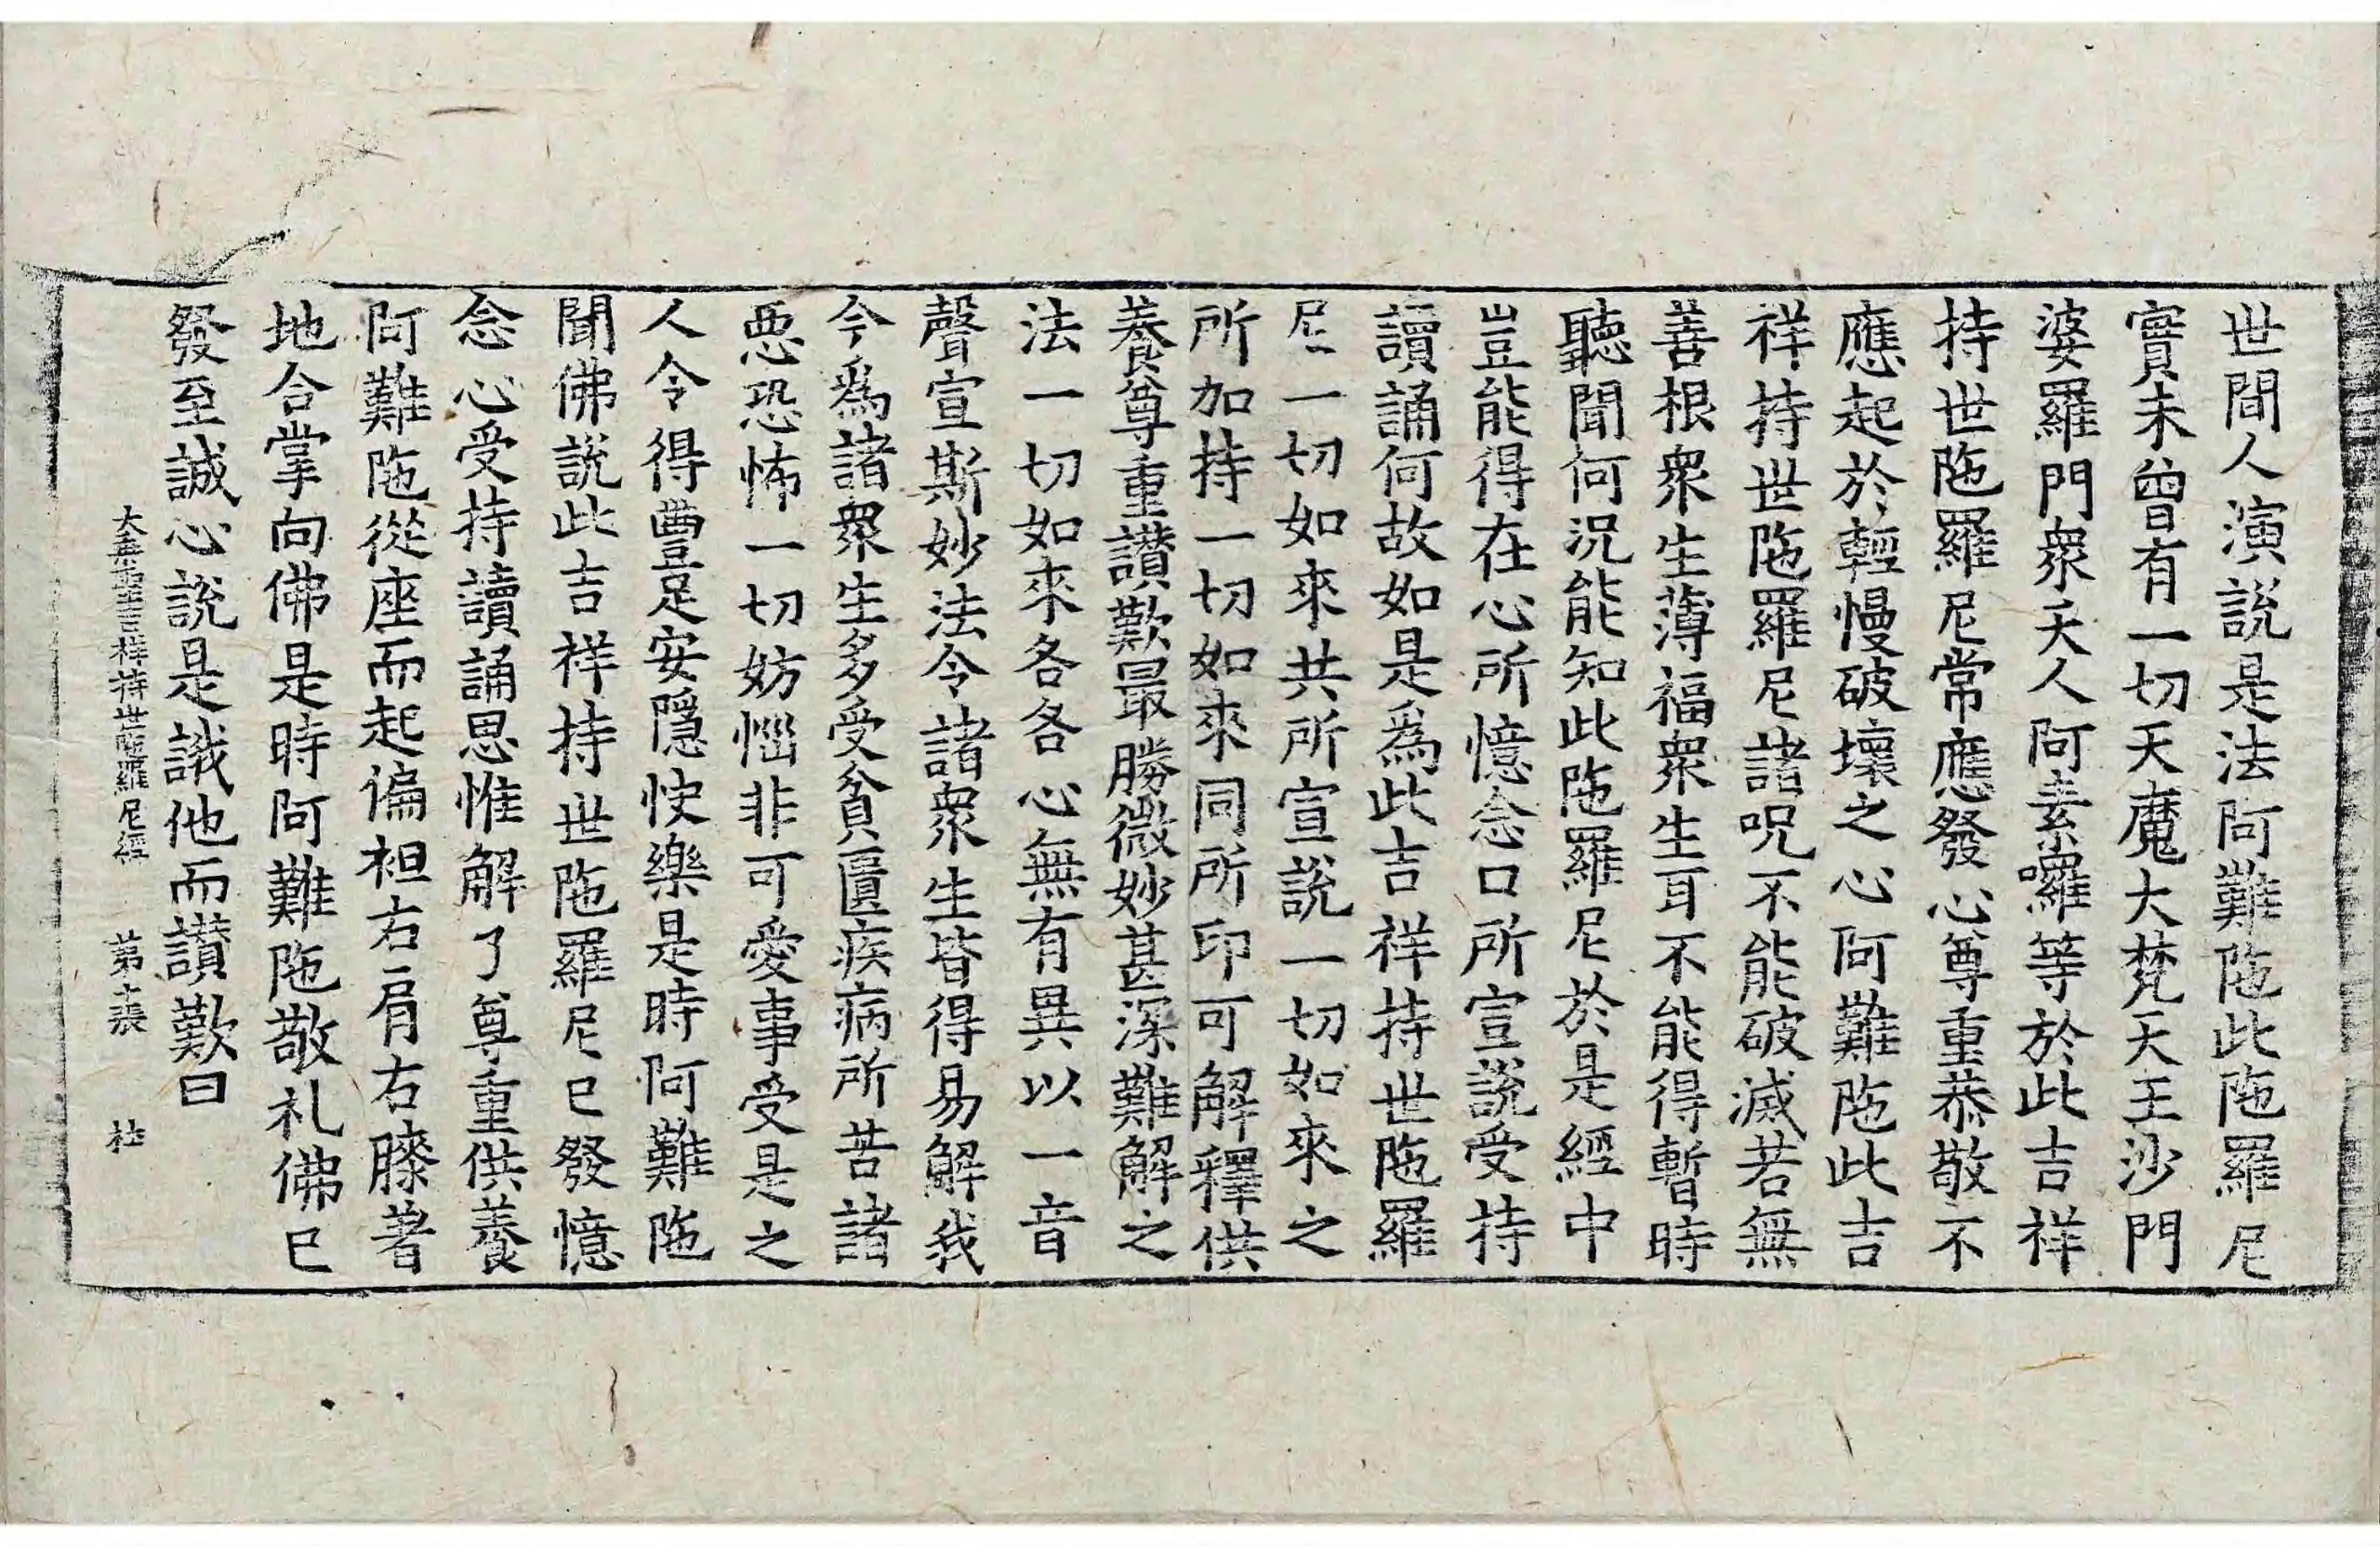 世間人演說是法阿難陁此陁羅尼
實未曾有一切天魔大梵天王沙門
婆羅門衆天人阿素囉等於此吉祥
持世陁羅尼常應發心尊重恭敬不
應起於輕慢破壞之心阿難陁此吉
祥持世陁羅尼諸呪不能破滅若無
善根衆生薄福衆生耳不能得暫時
聽聞何況能知此陁羅尼於是經中
豈能得在心所憶念口所宣說受持
讀誦何故如是爲此吉祥持世陁羅
尼一切如來共所宣說一切如來之
所加持一切如來同所印可解釋供
養尊重讃歎最勝微妙甚深難解之
法一切如來各各心無有異以一音
聲宣斯妙法令諸衆生皆得易解我
今爲諸衆生多受貧匱疾病所苦諸
惡恐怖一切妨惱非可愛事受是之
人令得豐足安隱快樂是時阿難陁
聞佛說此吉祥持世陁羅尼已發憶
念心受持讀誦思惟解了尊重供養
阿難陁從座而起偏袒右肩右膝著
地合掌向佛是時阿難陁敬礼佛已
發至誠心說是讖他而讃歎曰
大乘聖吉祥持世陁羅尼經 第 張 杜